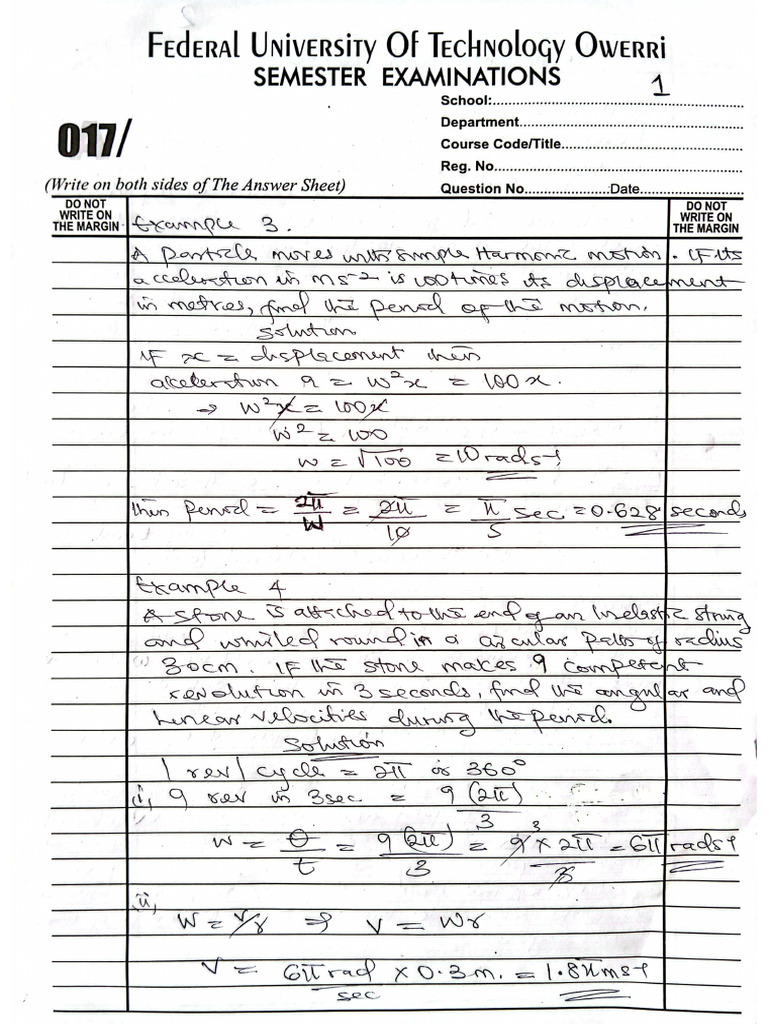 Federal University Of Technology Owerri
SEMESTER EXAMINATIONS
1
School:
Department
Course Code/Title
Reg. No
Question No. Date
017/
(Write on both sides of The Answer Sheet)
DO NOT WRITE ON THE MARGIN
DO NOT WRITE ON THE MARGIN
Example 3.
A particle moves with simple Harmonic motion. If its
acceleration in ms⁻² is 100 times its displacement
in metres, find the period of the motion.
Solution
If x = displacement then
acceleration a = w²x = 100x.
→ w²x = 100x
w² = 100
w = √100 = 10 rads⁻¹
then period = 2π/w = 2π/10 = π/5 sec = 0.628 seconds
Example 4
A stone is attached to the end of an Inelastic string
and whirled round in a circular path of radius
(i) 30cm. If the stone makes 9 competent
revolution in 3 seconds, find the angular and
linear velocities during the period.
Solution
1 rev/cycle = 2π or 360°
(i), 9 rev in 3sec = 9(2π)/3
w = θ/t = 9(2π)/3 = 9³ x 2π/3 = 6π rads⁻¹
ii,
w = v/r ⇒ v = wr
v = 6π rad/sec x 0.3m. = 1.8π ms⁻¹